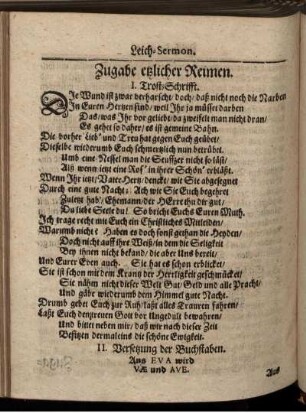 Leich-Sermon.
Zugabe etzlicher Reimen.
I. Trost-Schrifft.
Die Wund ist zwar verharscht/ doch/ daß nicht noch die Narben
In Euren Hertzen sind/ weil Ihr ja müsset darben
Das/ was Ihr vor geliebt/ da zweifelt man nicht dran/
Es gehet so daher/ es ist gemeine Bahn.
Die vorher Lieb' und Treu hat gegen Euch geübet/
Dieselbe wiederumb Euch schmertzlich nun betrübet.
Umb eine Nessel man die Seuffzer nicht so läst/
Als wenn jetzt eine Ros' in ihrer Schön' erbläst.
Wenn Ihr jetzt/ Vater-Hertz/ dencket/ wie Sie abgesegnet
Durch eine gute Nacht; Ach wie Sie Euch begegnet
Zuletzt hab/ Ehemann/ der Herre thu dir gut/
Du liebe Seele du! So bricht Euch Euren Muth.
Ich trage recht mit Euch ein Christliches Mitleiden/
Warumb nicht? Haben es doch sonst gethan die Heyden/
Doch nicht auff ihre Weiß/ in dem die Seligkeit
Bey ihnen nicht befand/ die aber Uns bereit/
Und Eurer Even auch. Sie hat es schon erblicket/
Sie ist schon mit dem Krantz der Herrligkeit geschmücket/
Sie nähm nicht dieser Welt Gut/ Geld und alle Pracht/
Und gäbe wiederumb dem Himmel gute Nacht.
Drumb gebet Euch zur Ruh/ last alles Trauren fahren/
Last Euch den treuen Gott vor Ungedult bewahren/
Und bittet neben mir/ daß wir nach dieser Zeit
Besitzen dermaleins die schöne Ewigkeit.
II. Versetzung der Buchstaben.
Aus EVA wird
VÆ und AVE.
Aus